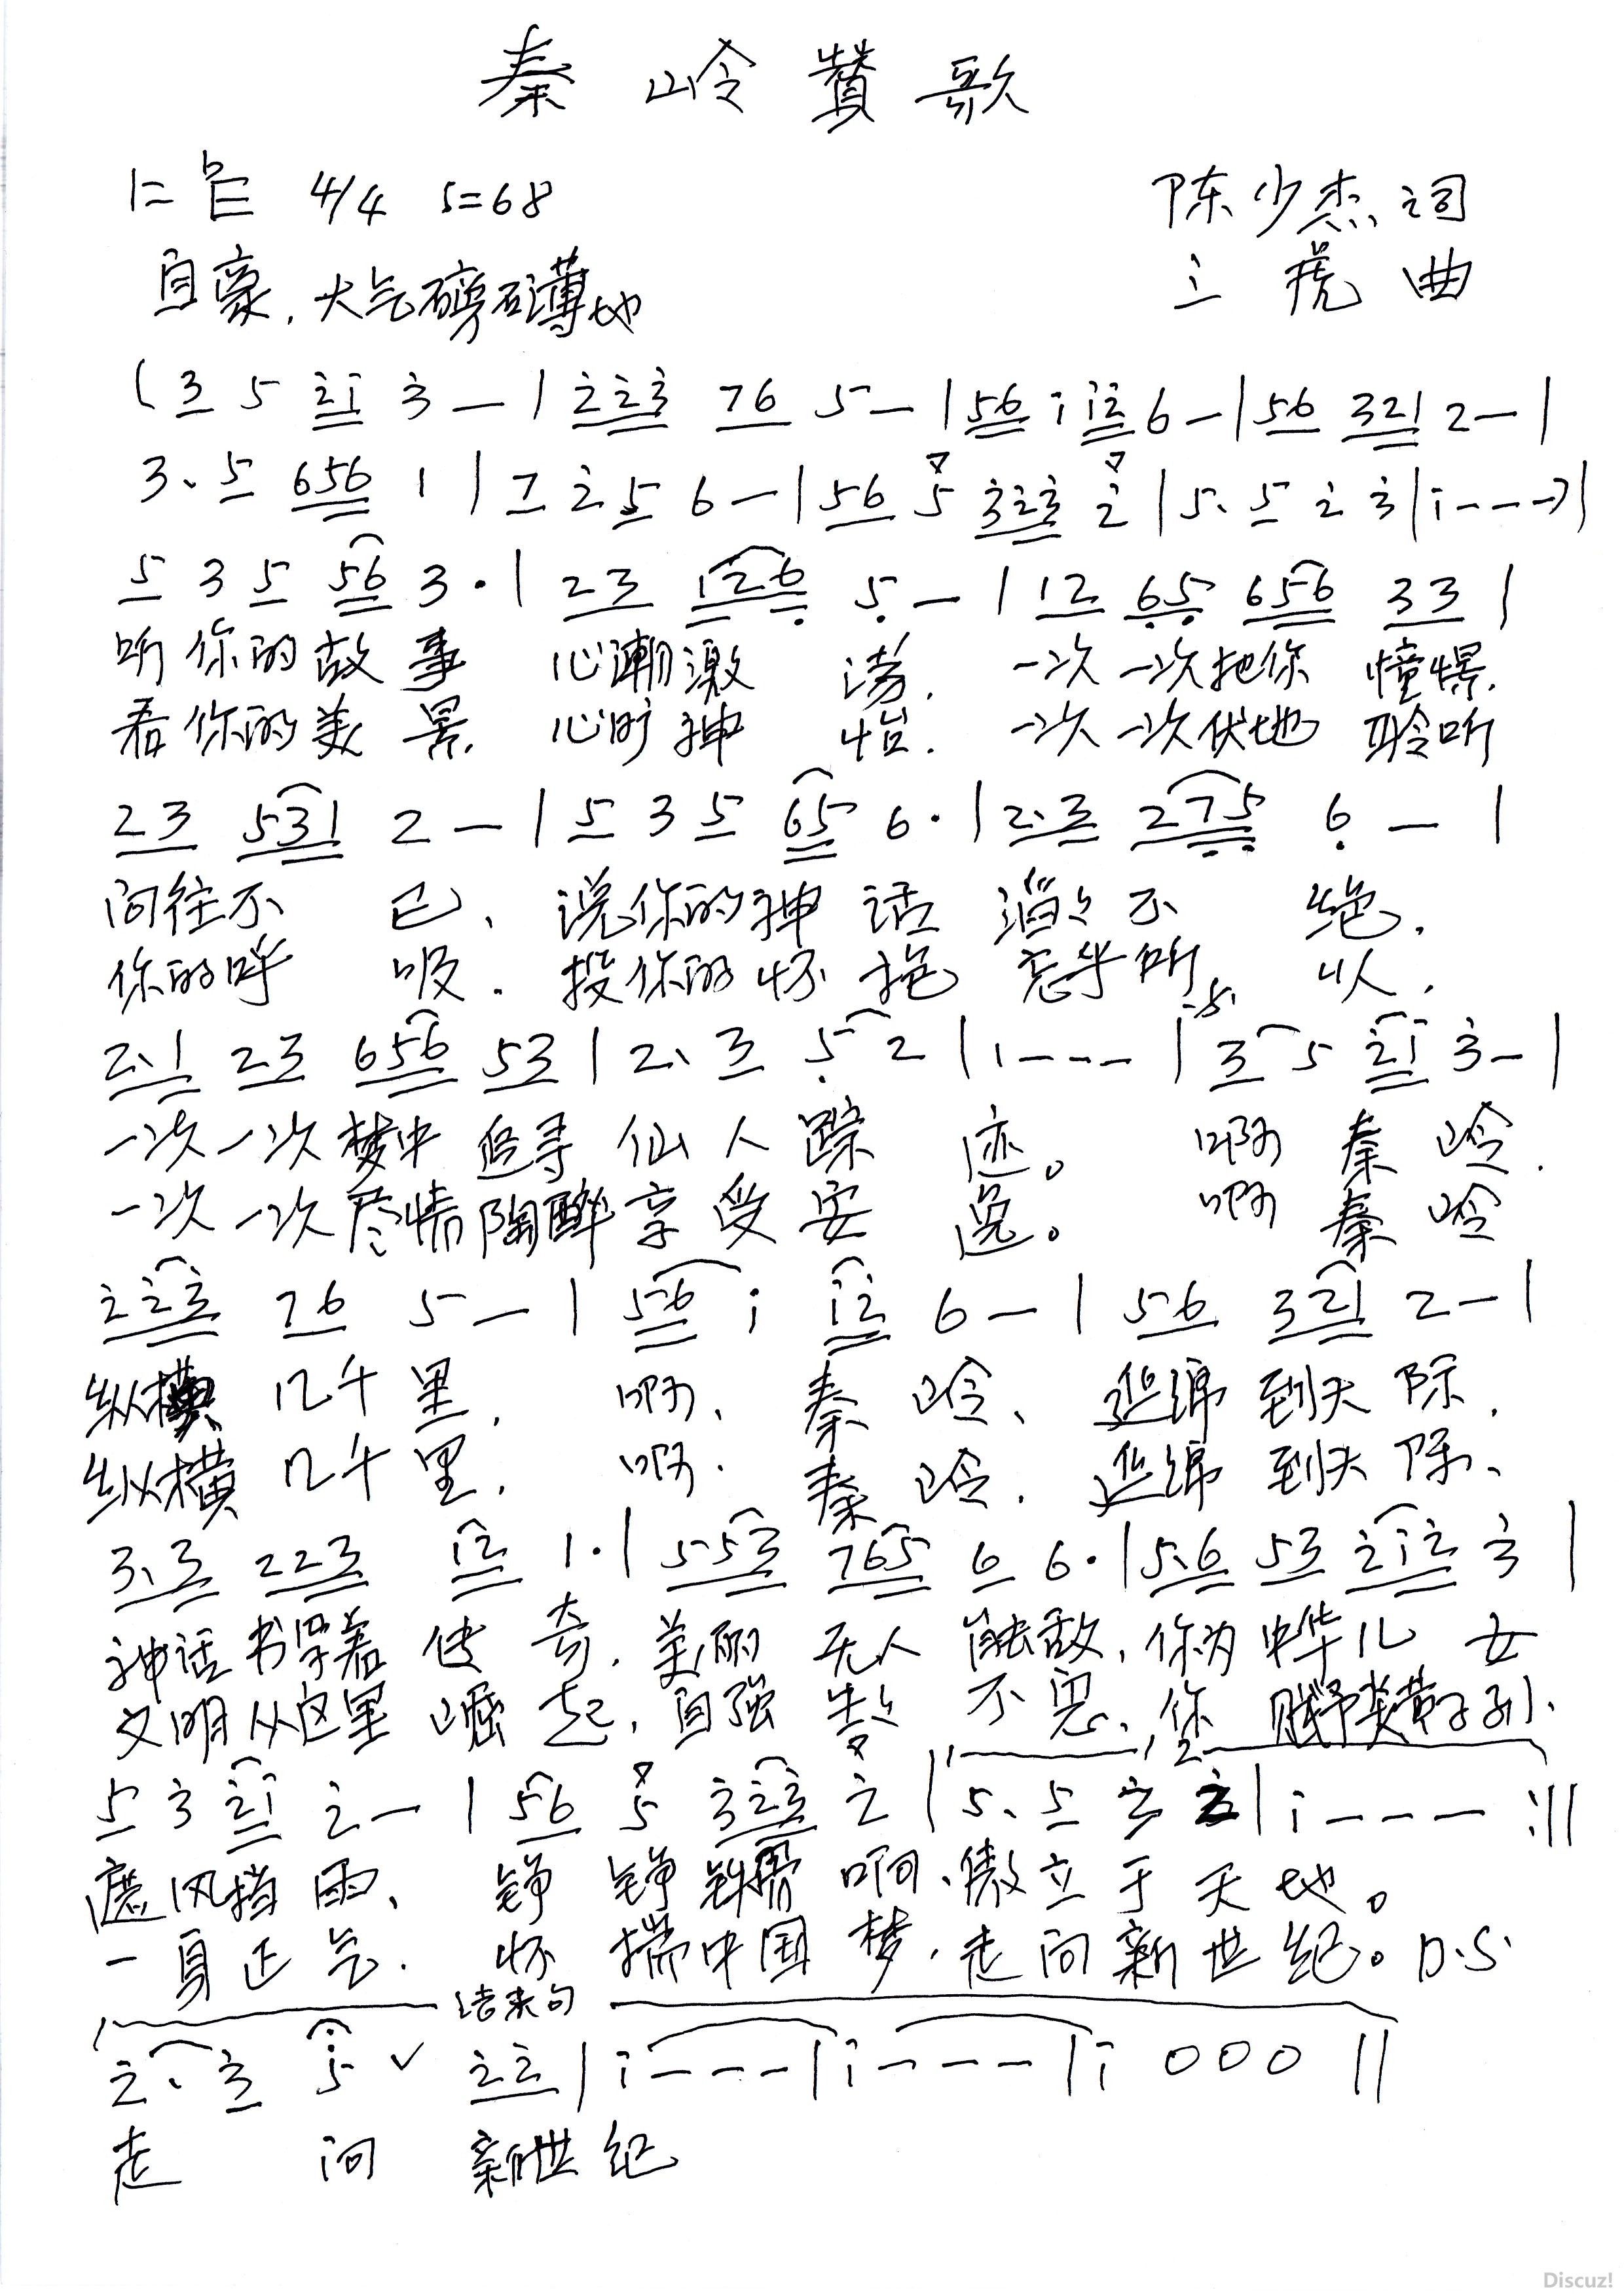 秦岭赞歌
1=♭E 4/4 5=68 陈少杰词
自豪.大气磅礴地 三虎曲
(3 5 2̇1̇ 3̇ — | 2̇2̇3̇ 76 5 — | 56 1̇ 1̇2̇ 6 — | 56 321 2 — |
3. 5 656 1 | 7 2̇ 5 6 — | 56 5 3̇2̇3̇ 2̇ | 5. 5 2̇ 3̇ | 1̇ - - -) |
5 3 5 56 3. | 23 126̣ 5̣ — | 12 6̣5̣ 656 33 |
听你的故事 心潮激荡. 一次一次把你憧憬.
看你的美景. 心旷神怡. 一次一次伏地聆听
23 531 2 — | 5 3 5 65 6. | 2.3 27̣5̣ 6̣ — |
向往不已、说你的神话滔々不绝.
你的呼吸. 投你的怀抱忘乎所以.
2.1 23 656 53 | 2. 3 5̣ 2 | 1 - - - | ·S· 3 5 2̇1̇ 3̇ - |
一次一次梦中追寻仙人踪迹。 啊秦岭.
一次一次尽情陶醉享受安逸。 啊秦岭
2̇2̇3̇ 76 5 — | 56 1̇ 1̇2̇ 6 — | 56 321 2 — |
纵横几千里. 啊、秦岭、连绵到天际.
纵横几千里. 啊. 秦岭. 连绵到天际、
3.3 223 12 1. | 553 765 6 6. | 5.6 53 2̇1̇2̇ 3̇ |
神话书写着传奇. 美丽无人能敌, 你为中华儿女
文明从这里崛起, 自强生々不息、你赋予炎黄子孙、
5 3̇ 2̇1̇ 2̇ — | 56 5 3̇2̇3̇ 2̇ | 1 5. 5 2̇ 2̇ | 2 1̇ - - - :||
遮风挡雨、铮铮铁骨啊、傲立于天地。
一身正气. 怀揣中国梦. 走向新世纪。D.S.
结束句
2̇. 3̇ 5̇ ∨ 2̇2̇ | 1̇ - - - | 1̇ - - - | 1̇ 0 0 0 ||
走向新世纪
Discuz!